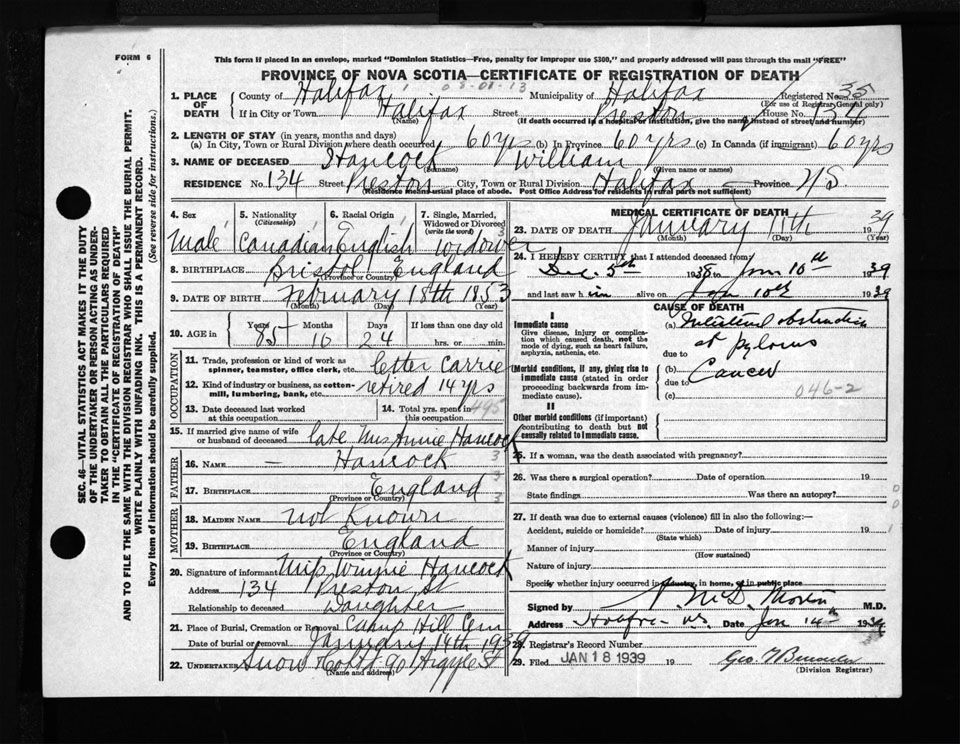 FORM 6
This form if placed in an envelope, marked "Dominion Statistics—Free, penalty for improper use $300," and properly addressed will pass through the mail "FREE"
PROVINCE OF NOVA SCOTIA—CERTIFICATE OF REGISTRATION OF DEATH
SEC. 46—VITAL STATISTICS ACT MAKES IT THE DUTY
OF THE UNDERTAKER OR PERSON ACTING AS UNDER-
TAKER TO OBTAIN ALL THE PARTICULARS REQUIRED
IN THE "CERTIFICATE OF REGISTRATION OF DEATH"
AND TO FILE THE SAME WITH THE DIVISION REGISTRAR WHO SHALL ISSUE THE BURIAL PERMIT.
WRITE PLAINLY WITH UNFADING INK. THIS IS A PERMANENT RECORD.
Every item of information should be carefully supplied. (See reverse side for instructions.)
1. PLACE OF DEATH County of Halifax 03-01-13 Municipality of Halifax Registered No. 35
(For use of Registrar General only)
If in City or Town Halifax Street Preston House No. 134
(Name) (If death occurred in a hospital or institution, give the name instead of street and number)
2. LENGTH OF STAY (in years, months and days)
(a) In City, Town or Rural Division where death occurred 60 yrs (b) In Province 60 yrs (c) In Canada (if immigrant) 60 yrs
3. NAME OF DECEASED Hancock William
(Surname) (Given name or names)
RESIDENCE No. 134 Street Preston City, Town or Rural Division Halifax Province N.S.
(Residence means usual place of abode. Post Office Address for residents in rural parts not sufficient)
4. Sex 5. Nationality (Citizenship) 6. Racial Origin 7. Single, Married, Widowed or Divorced (write the word)
Male Canadian English Widower
8. BIRTHPLACE Bristol England
(Province or Country)
9. DATE OF BIRTH February 18th 1853
(Month) (Day) (Year)
10. AGE in Years 85 Months 10 Days 24 If less than one day old hrs. or min.
OCCUPATION
11. Trade, profession or kind of work as spinner, teamster, office clerk, etc. Letter Carrie
12. Kind of industry or business, as cotton-mill, lumbering, bank, etc. retired 14 yrs
13. Date deceased last worked at this occupation 14. Total yrs. spent in this occupation 495
15. If married give name of wife or husband of deceased late Mrs Annie Hancock
FATHER
16. NAME — Hancock 3
17. BIRTHPLACE England 3
(Province or Country) 3
MOTHER
18. MAIDEN NAME not Known
19. BIRTHPLACE England
(Province or Country)
20. Signature of informant Miss Winnie Hancock
Address 134 Preston St
Relationship to deceased Daughter
21. Place of Burial, Cremation or Removal Camp Hill Cem
Date of burial or removal January 14th 1939
22. UNDERTAKER Snow Co Ltd 90 Argyle St
(Name and address)
MEDICAL CERTIFICATE OF DEATH
23. DATE OF DEATH January 11th 1939
(Month) (Day) (Year)
24. I HEREBY CERTIFY that I attended deceased from
Dec. 5th 1938 to Jan 10th 1939
and last saw him alive on Jan 10th 1939
CAUSE OF DEATH
I
Immediate cause
Give disease, injury or complication which caused death, not the mode of dying, such as heart failure, asphyxia, asthenia, etc.
(a) Intestinal obstruction
at Pylorus
due to
(Morbid conditions, if any, giving rise to immediate cause (stated in order proceeding backwards from immediate cause).
(b) Cancer
due to
(c) 046-2
II
Other morbid conditions (if important) contributing to death but not causally related to immediate cause.
25. If a woman, was the death associated with pregnancy?
26. Was there a surgical operation? Date of operation 19
State findings Was there an autopsy?
27. If death was due to external causes (violence) fill in also the following:—
Accident, suicide or homicide? Date of injury 19
(State which)
Manner of injury
(How sustained)
Nature of injury
Specify whether injury occurred in industry, in home, or in public place
Signed by M.D.
Address Halifax N.S. Date Jan 14th 1939
28. Registrar's Record Number
29. Filed JAN 18 1939 19
(Division Registrar)